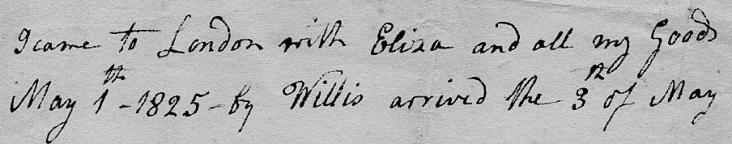 I came to London with Eliza and all my Goods
May 1th - 1825 - by Willis arrived the 3th of May